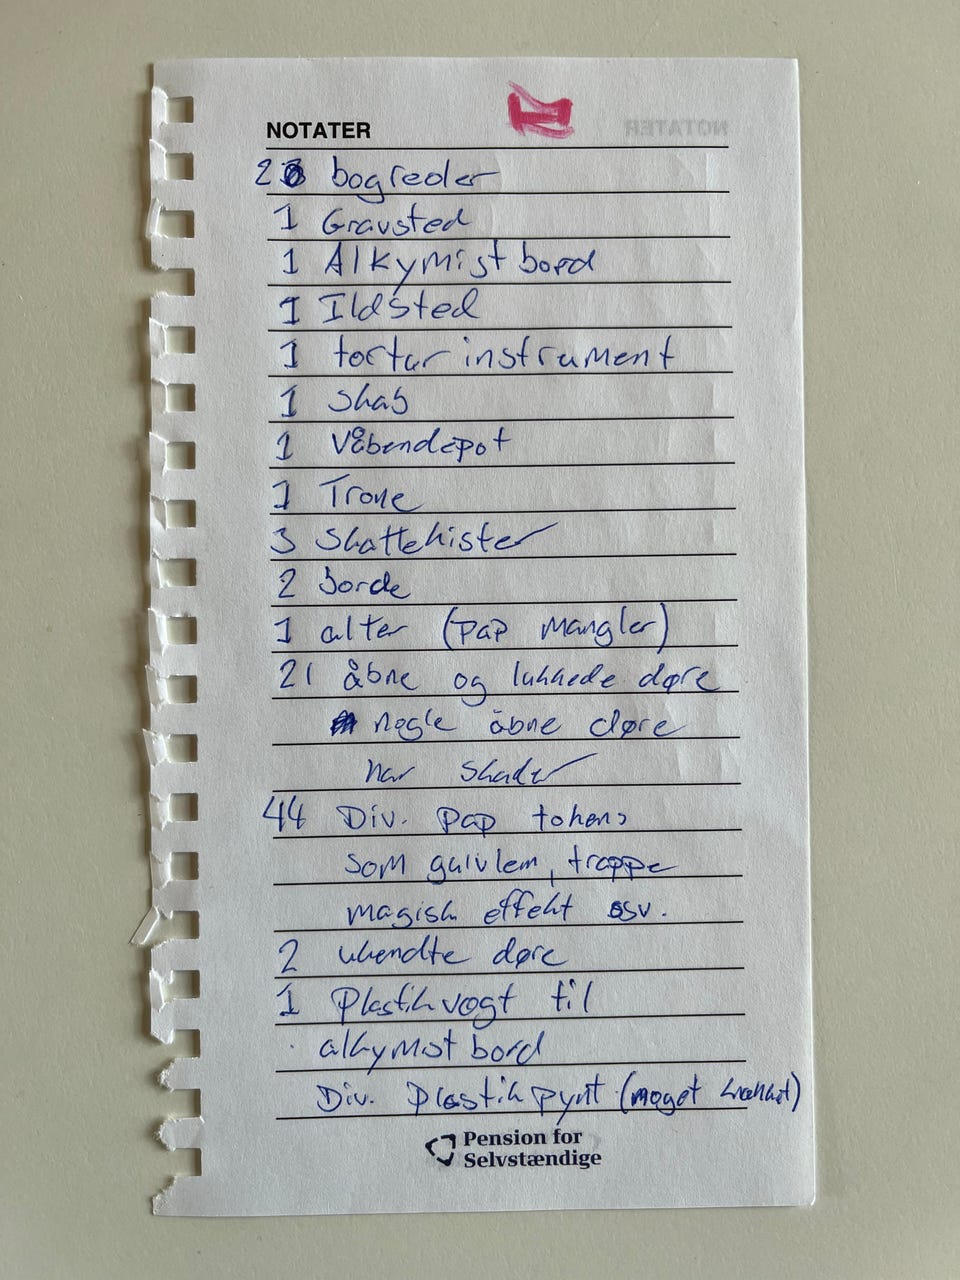 NOTATER
2 bogreoler
1 Gravsted
1 Alkymist bord
1 Ildsted
1 tortur instrument
1 skab
1 Våbendepot
1 Trone
3 Skattekister
2 borde
1 alter (pap mangler)
21 åbne og lukkede døre
nogle åbne døre
har skader
44 Div. pap tokens
som gulvlem, trappe
magisk effekt osv.
2 ukendte døre
1 Plastik vægt til
alkymist bord
Div. Plastik pynt (meget knækket)
Pension for
Selvstændige